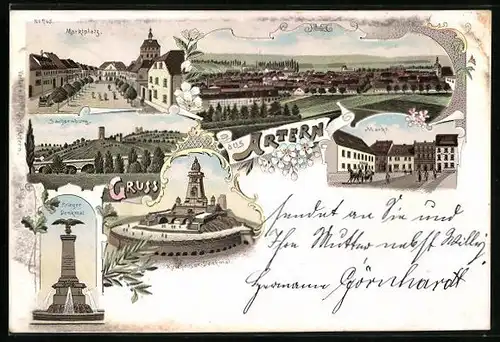 Marktplatz.
Sachsenburg.
Markt.
GRUSS
aus
ARTERN
Krieger
Denkmal
sendet an Sie und
Ihre Mutter nebst Willy
Hermann Görnhardt